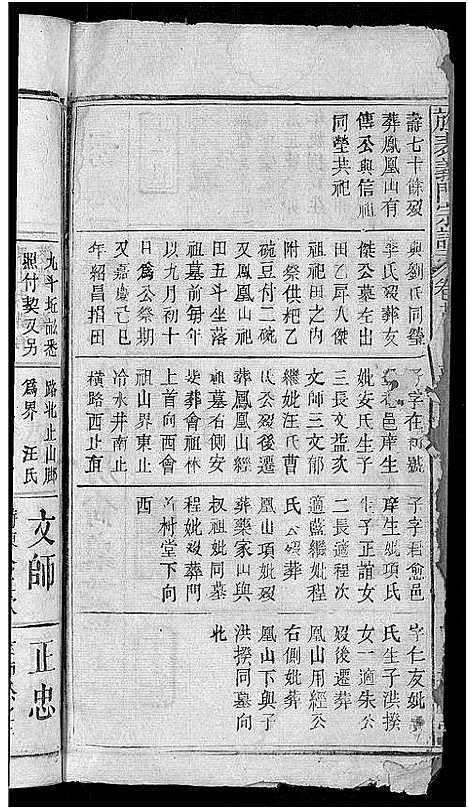 旌表義門宗譜 卷
壽七十餘歿
葬鳳凰山有
傳公與信祖
同塋共祀
與劉氏同塋
李氏歿葬友
傑公墓左出
田乙坵入傑
祖祀田之內
附祭供杞乙
碗豆付二碗
又鳳凰山祀
田五斗坐落
祖墓前每年
以九月初十
日為公祭期
又嘉慶己巳
年紹昌招田
九斗坵畝悉
照付契又另
子字在號
邑庠生
妣安氏生子
三長文益次
文師三文郁
繼妣汪氏曹
氏公歿後遷
葬鳳凰山經
祖墓右側安
葬會祖林
上首向西會
祖山界東止
冷水井南止
橫路西止直
路北止山脚
為界 汪氏
子字君愈邑
庠生妣項氏
生子正誼女
二長適程次
適藍繼妣程
氏 公歿葬
凰山項妣歿
葬藥家山與
叔祖妣同墓
程妣歿葬門
前村堂下向
西
文師
字仁友妣
氏生子洪揆
女一適朱公
歿後遷葬
凰山用經公
右側妣葬
凰山下與子
洪揆同墓向
北
正忠